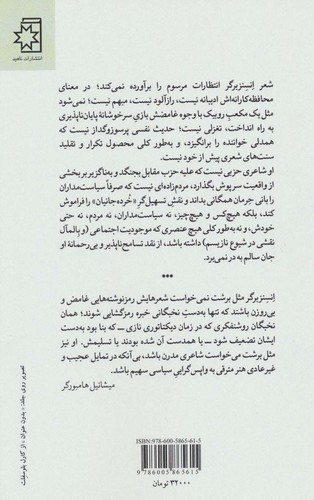 انتشارات ناهید
شعر اِنسِنزبرگر انتظارات مرسوم را برآورده نمی‌کند؛ در معنای
محافظه‌کارانه‌اش ادیبانه نیست، رازآلود نیست، مبهم نیست؛ نمی‌شود
مثل یک مکعبِ روبیک با وجوه غامضش بازی سرخوشانهٔ پایان‌ناپذیری
به راه انداخت، تغزلی نیست؛ حدیث نفسی پرسوزوگداز نیست که
همدلی خواننده را برانگیزد، و به‌طور کلی محصول تکرار و تقلید
سنت‌های شعری پیش از خود نیست.
او شاعری حزبی نیست که علیه حزب مقابل بجنگد و به‌ناگزیر بر بخشی
از واقعیت سرپوش بگذارد، مردم‌زاده‌ای نیست که صرفاً سیاست‌مداران
را بانی جرمان همگانی بداند و نقشِ تسهیل‌گرِ «خُرده‌جانیان» را فراموش
کند، بلکه هیچ‌کس و هیچ‌چیز، نه سیاست‌مداران، نه مردم، نه حتی
خودش، و نه به‌طور کلی هیچ عنصری که موجودیت اجتماعی (و بالمآل
نقشی در شیوع نازیسم) داشته باشد، از نقد تسامح‌ناپذیر و بی‌رحمانهٔ او
جان سالم به در نمی‌برد.
***
اِنسِنزبرگر مثل برشت نمی‌خواست شعرهایش رمزنوشته‌هایی غامض و
بی‌روزن باشند که تنها به‌دستِ نخبگانی خبره رمزگشایی شوند؛ همان
نخبگان روشنفکری که در زمان دیکتاتوری نازی ــ که بنا بود به‌دست
ایشان تضعیف شود ــ یا همدست آن شده بودند یا تسلیمش. او نیز
مثل برشت می‌خواست شاعری مدرن باشد، بی‌آنکه در تمایل عجیب و
غیرعادی هنر مترقی به واپس‌گراییِ سیاسی سهیم باشد.
میشائیل هامبورگر
تصویر روی جلد: «بدون عنوان» از کارل بلوسفلت
ISBN: 978-600-5865-61-5
9 786005 865615
۳۲۰۰۰ تومان